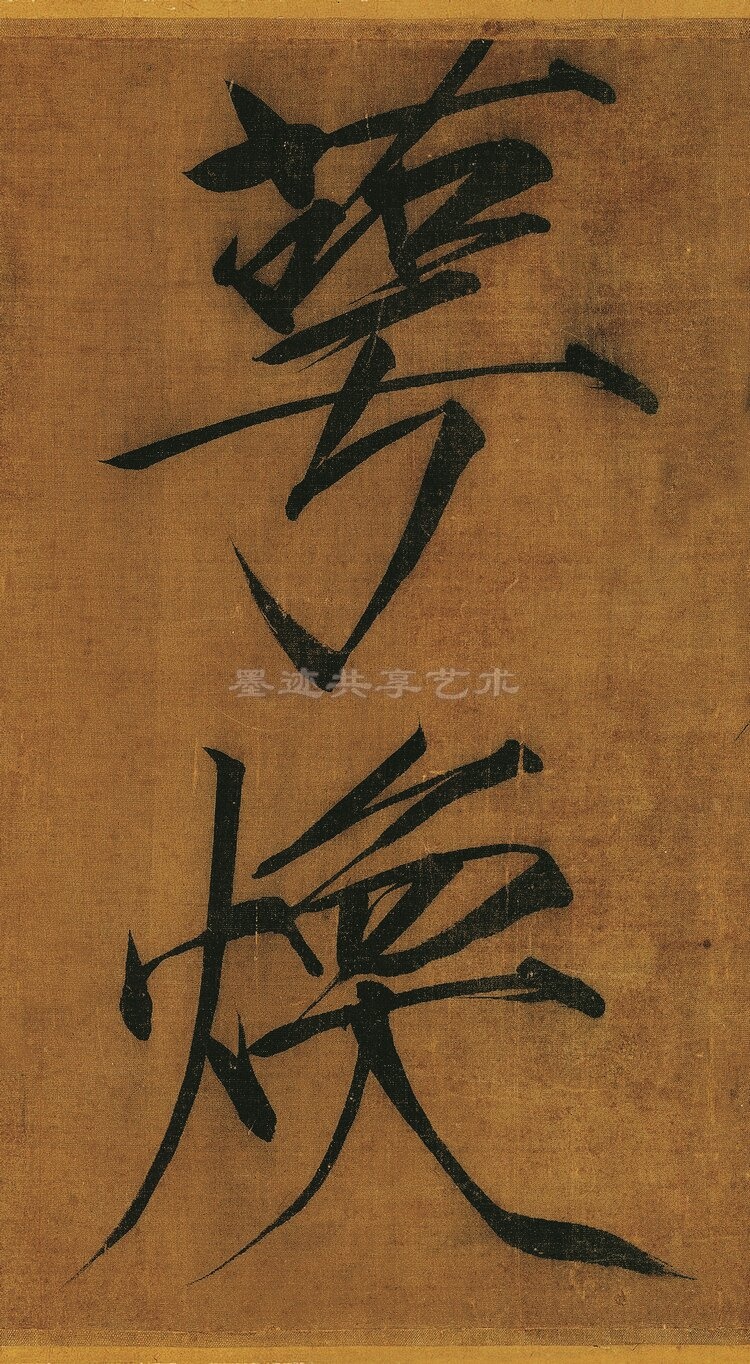 萼
墨迹共享艺术
煥